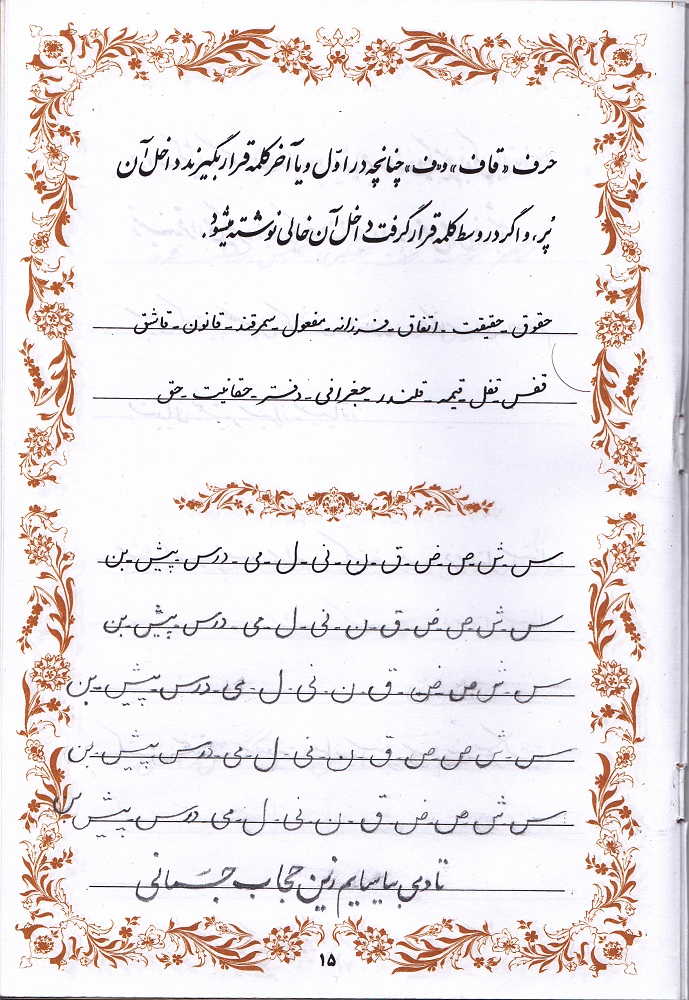 حرف «قاف» و «ف» چنانچه در اوّل و یا آخر کلمه قرار بگیرند داخل آن
پُر، و اگر در وسط کلمه قرار گرفت داخل آن خالی نوشته میشود.
حقوق ـ حقیقت ـ اتفاق ـ فرزانه ـ مفعول ـ سمرقند ـ قانون ـ قاشق
قفس ـ قفل ـ قیمه ـ قلندر ـ جغرافی ـ دفتر ـ حقانیت ـ حق
س ـ ش ـ ص ـ ض ـ ق ـ ن ـ نی ـ ل ـ می ـ درس ـ پیش ـ بن
س ـ ش ـ ص ـ ض ـ ق ـ ن ـ نی ـ ل ـ می ـ درس ـ پیش ـ بن
س ـ ش ـ ص ـ ض ـ ق ـ ن ـ نی ـ ل ـ می ـ درس ـ پیش ـ بن
س ـ ش ـ ص ـ ض ـ ق ـ ن ـ نی ـ ل ـ می ـ درس ـ پیش ـ بن
س ـ ش ـ ص ـ ض ـ ق ـ ن ـ نی ـ ل ـ می ـ درس ـ پیش ـ بن
تا دمی بیاسایم زین حجاب جسمانی
۱۵